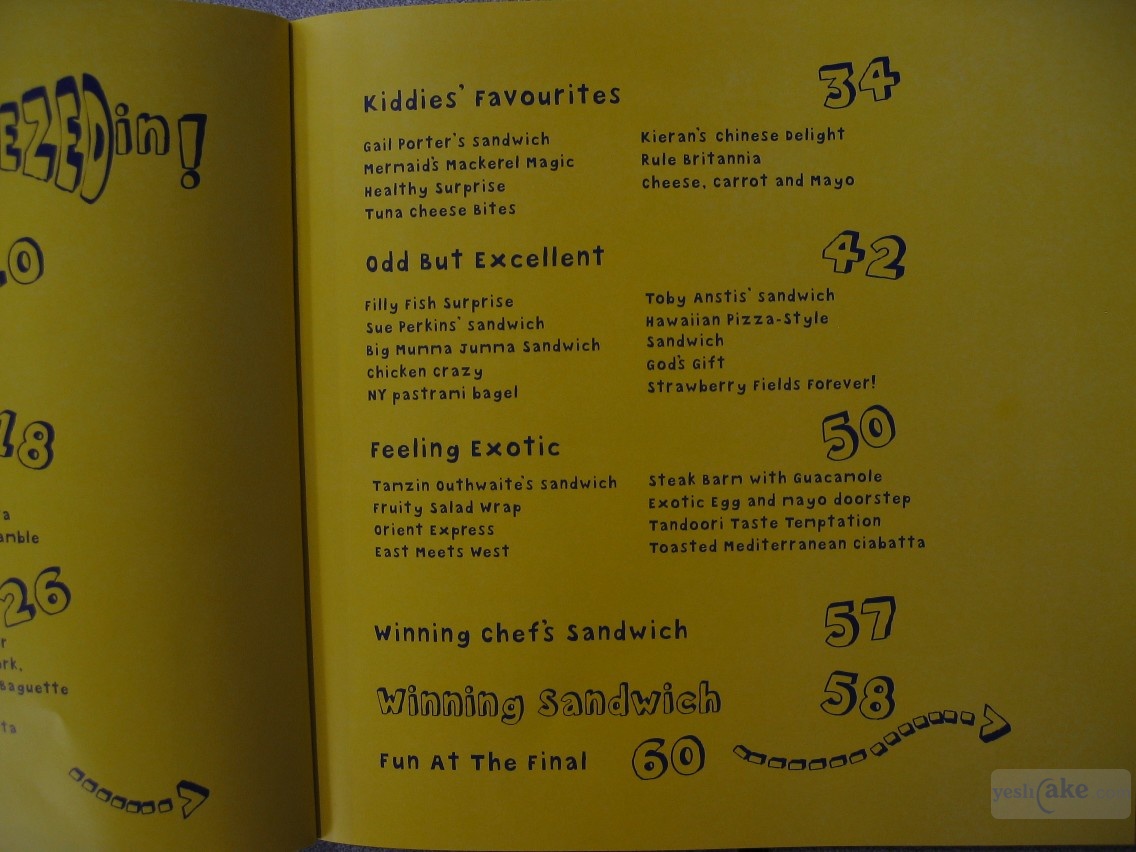 EZED in!
18
a
amble
26
r
rk,
Baguette
ta
Kiddies' Favourites 34
Gail Porter's Sandwich
Mermaid's Mackerel Magic
Healthy Surprise
Tuna Cheese Bites
Kieran's Chinese Delight
Rule Britannia
Cheese, Carrot and Mayo
Odd But Excellent 42
Filly Fish Surprise
Sue Perkins' Sandwich
Big Mumma Jumma Sandwich
Chicken Crazy
NY pastrami bagel
Toby Anstis' Sandwich
Hawaiian Pizza-Style
Sandwich
God's Gift
Strawberry Fields Forever!
Feeling Exotic 50
Tamzin Outhwaite's Sandwich
Fruity Salad Wrap
Orient Express
East Meets West
Steak Barm with Guacamole
Exotic Egg and mayo doorstep
Tandoori Taste Temptation
Toasted Mediterranean Ciabatta
Winning Chef's Sandwich 57
Winning Sandwich 58
Fun At The Final 60